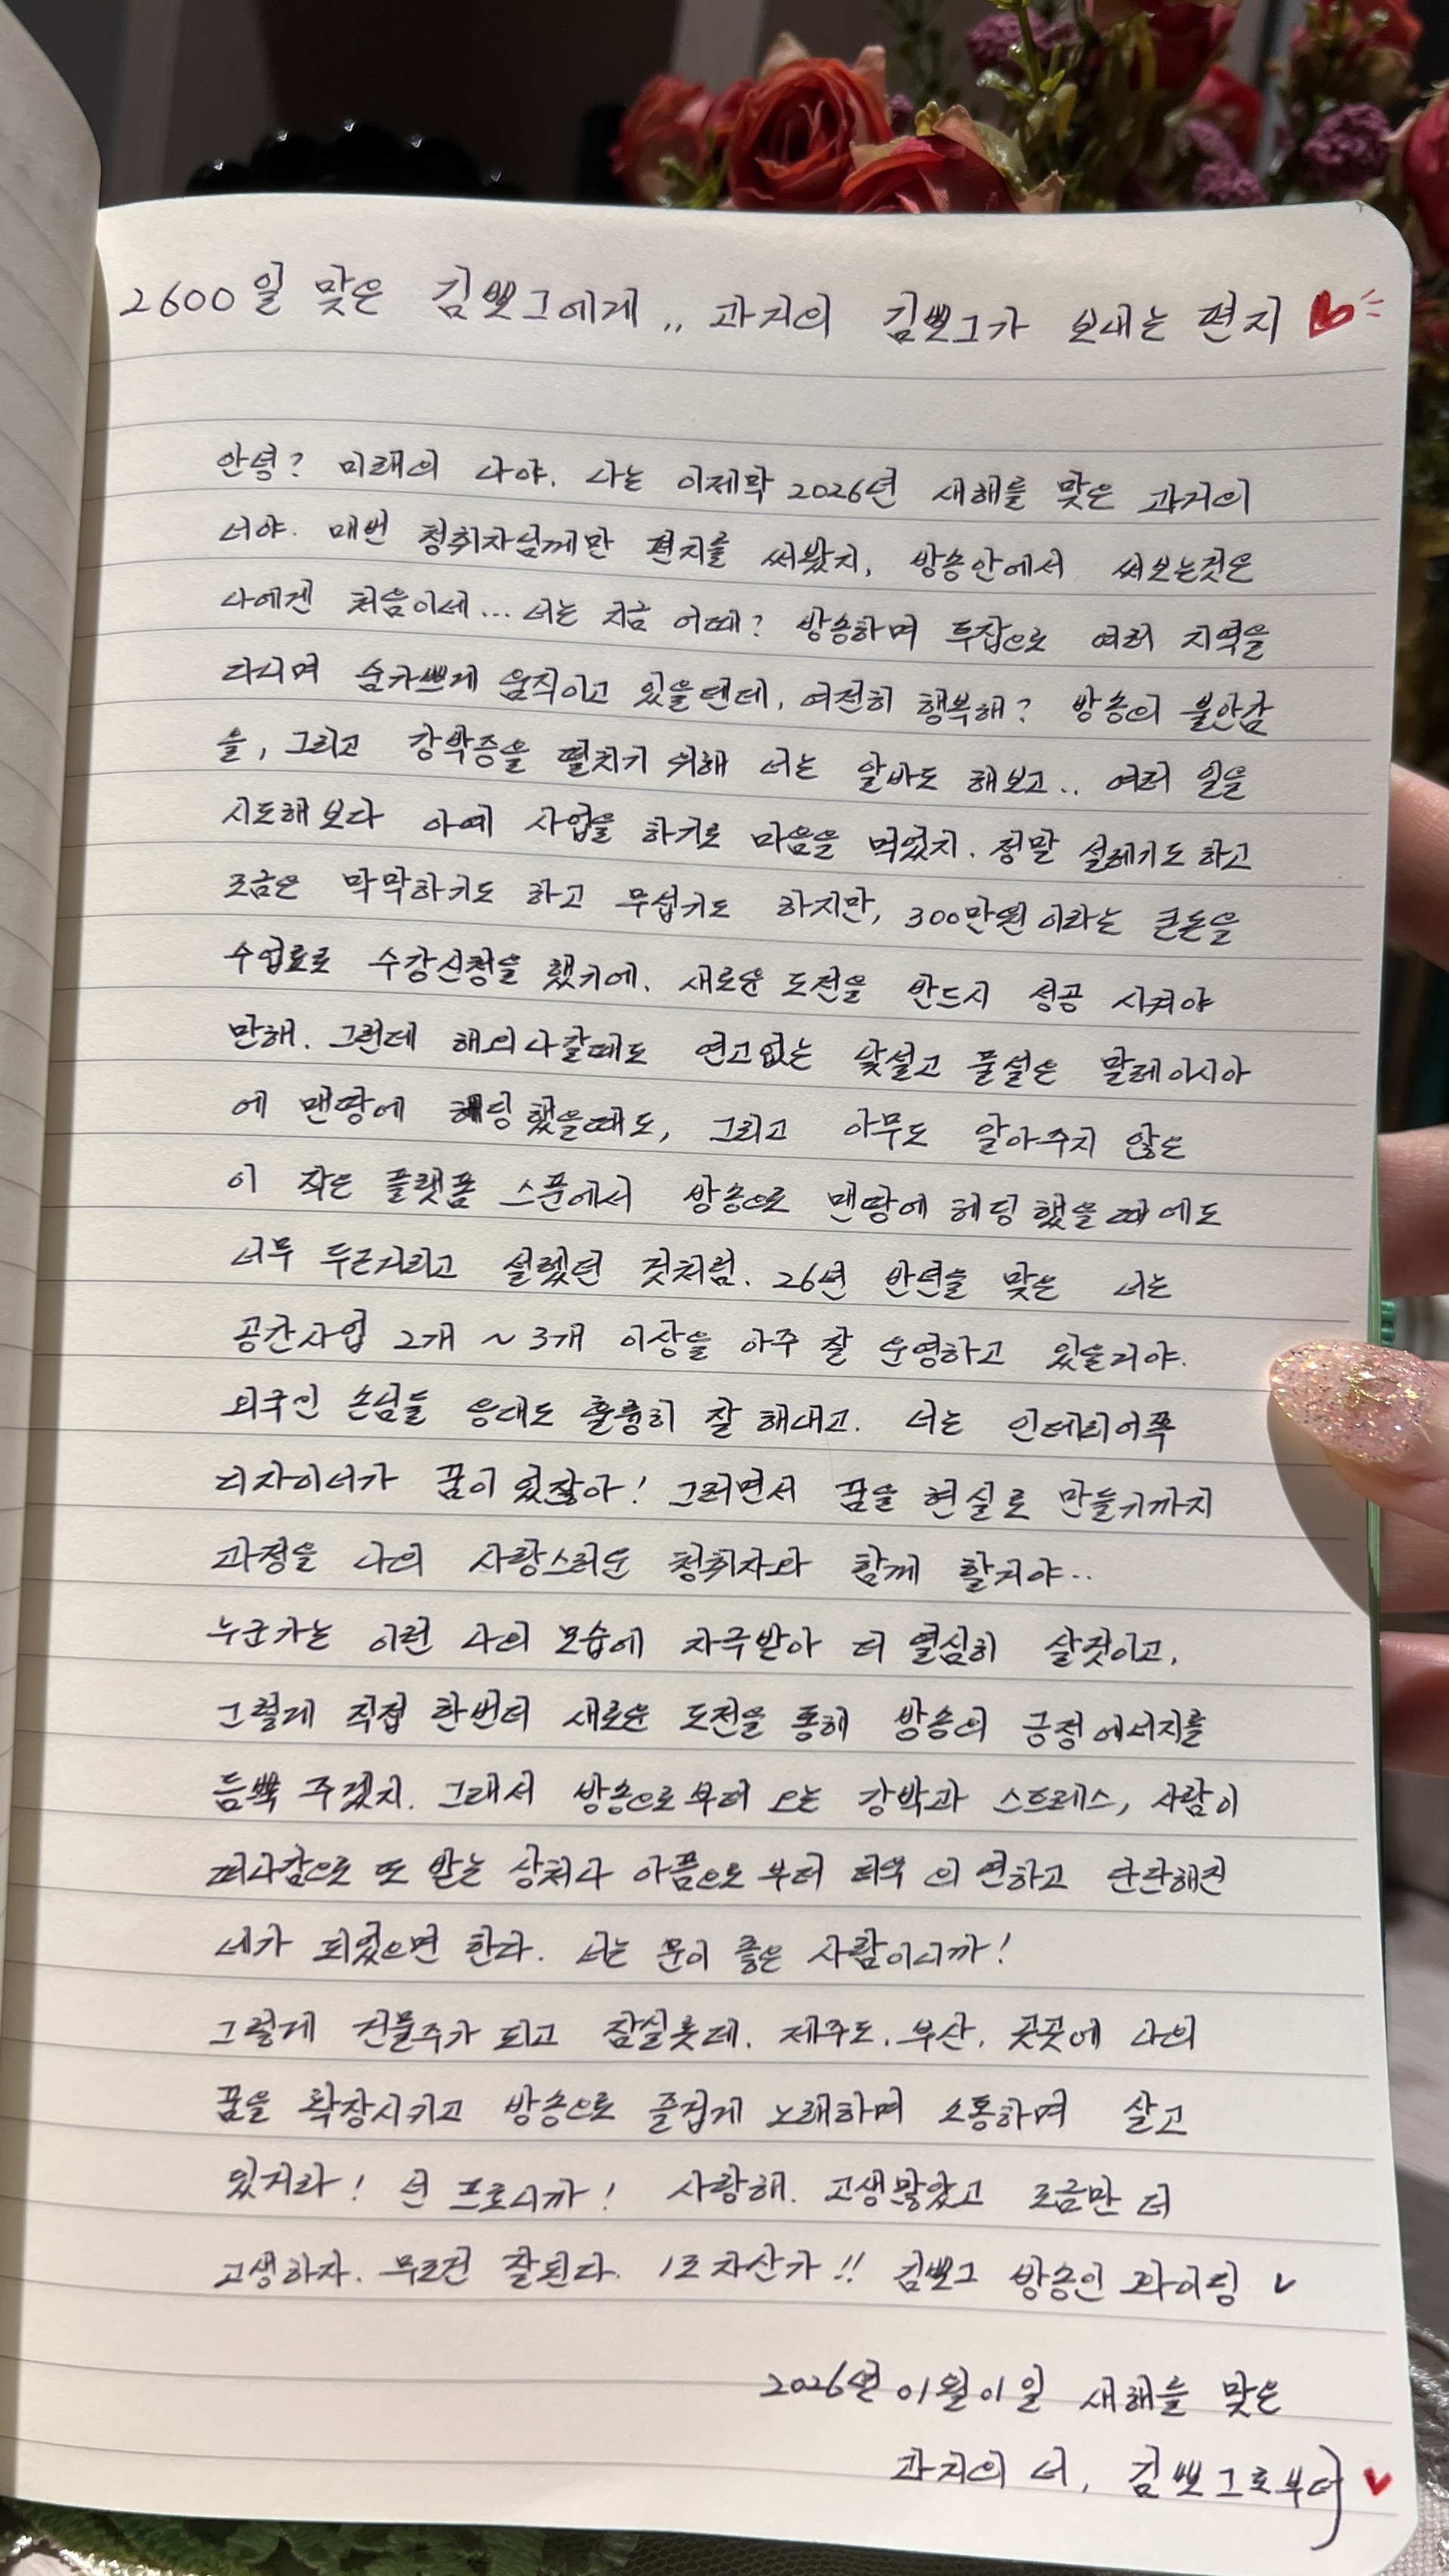 2600일 맞은 김뽀그에게.. 과거의 김뽀그가 보내는 편지
안녕? 미래의 나야. 나는 이제막 2026년 새해를 맞은 과거의
너야. 매번 청취자님께만 편지를 써봤지, 방송안에서 써보는것은
나에겐 처음이네... 너는 지금 어때? 방송하며 투잡으로 여러 지역을
다니며 숨가쁘게 움직이고 있을텐데, 여전히 행복해? 방송의 불안감
을, 그리고 강박증을 떨치기 위해 너는 알바도 해보고.. 여러 일을
시도해보다 아예 사업을 하기로 마음을 먹었지. 정말 설레기도 하고
조금은 막막하기도 하고 무섭기도 하지만, 300만원 이라는 큰돈을
수업료로 수강신청을 했기에. 새로운 도전을 반드시 성공 시켜야
만해. 그런데 해외나갈때도 연고없는 낯설고 물설은 말레이시아
에 맨땅에 헤딩했을때도, 그리고 아무도 알아주지 않은
이 작은 플랫폼 스푼에서 방송으로 맨땅에 헤딩했을때에도
너무 두근거리고 설렜던 것처럼. 26년 반년을 맞은 너는
공간사업 2개 ~ 3개 이상을 아주 잘 운영하고 있을거야.
외국인 손님들 응대도 훌륭히 잘 해내고. 너는 인테리어쪽
디자이너가 꿈이 있잖아! 그러면서 꿈을 현실로 만들기까지
과정을 나의 사랑스러운 청취자와 함께 할거야..
누군가는 이런 나의 모습에 자극받아 더 열심히 살것이고,
그렇게 직접 한번더 새로운 도전을 통해 방송의 긍정에너지를
듬뿍 주겠지. 그래서 방송으로부터 오는 강박과 스트레스, 사람이
떠나감으로 또 받는 상처나 아픔으로 부터 더욱 의연하고 단단해진
네가 되었으면 한다. 너는 운이 좋은 사람이니까!
그렇게 건물주가 되고 잠실롯데. 제주도. 부산. 곳곳에 나의
꿈을 확장시키고 방송으로 즐겁게 노래하며 소통하며 살고
있거라! 넌 프로니까! 사랑해. 고생많았고 조금만 더
고생하자. 무조건 잘된다. 1조 자산가!! 김뽀그 방송인 화이팅
2026년 01월01일 새해를 맞은
과거의 너, 김뽀그로부터